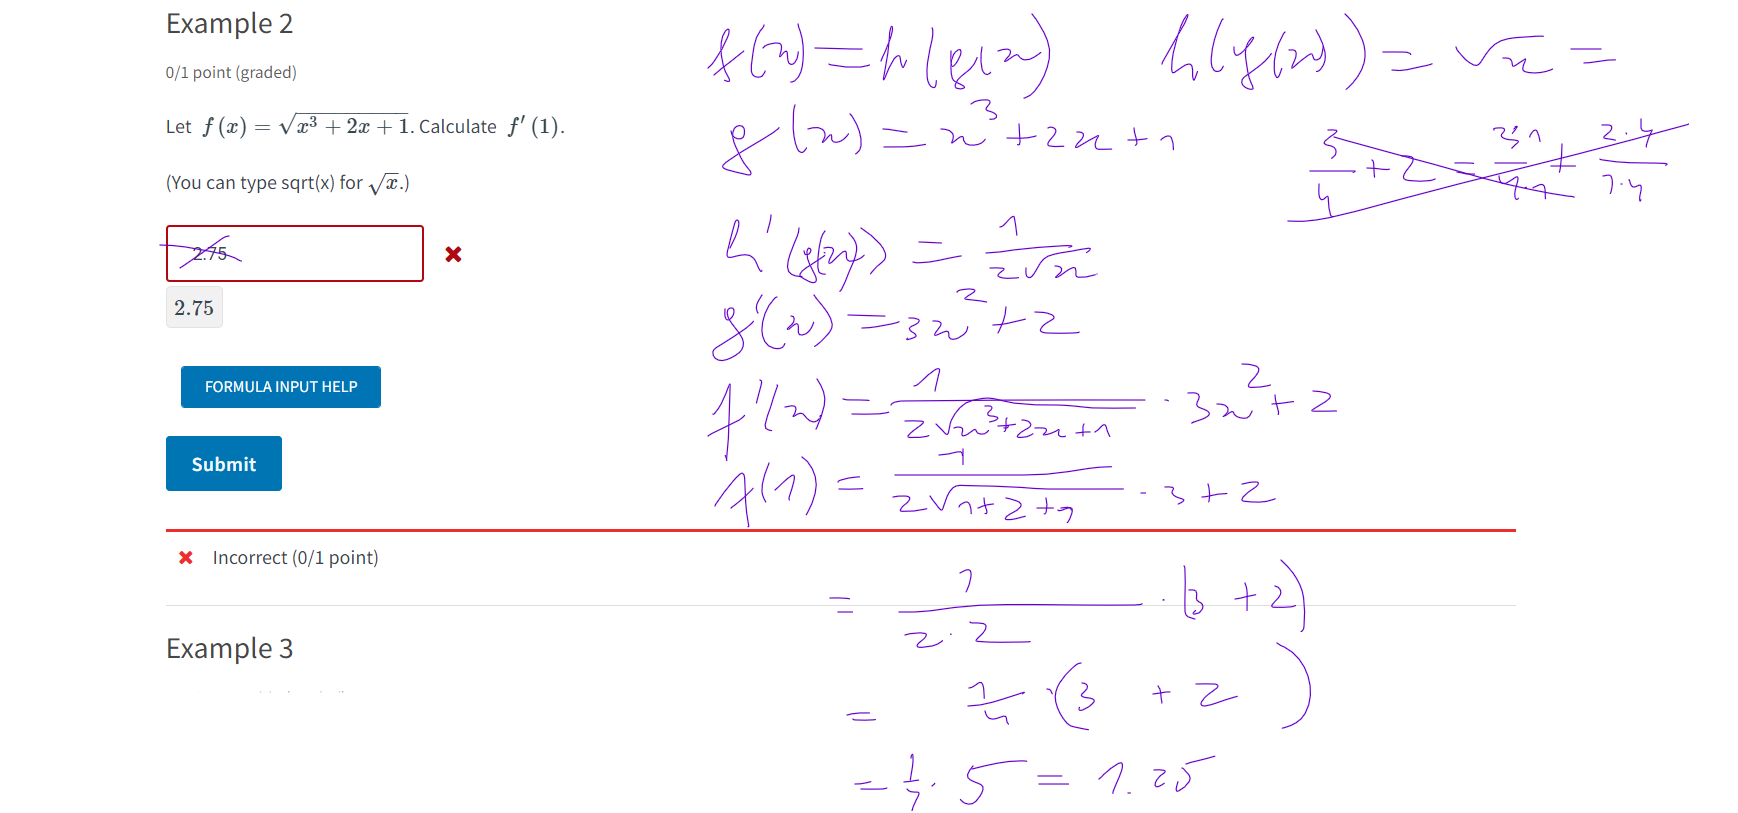 Example 2
0/1 point (graded)
Let f (x) = √(x³ + 2x + 1). Calculate f′ (1).
(You can type sqrt(x) for √x.)
2.75
2.75
FORMULA INPUT HELP
Submit
Incorrect (0/1 point)
Example 3
f(x) = h(g(x)
h(g(x)) = √x =
g(x) = x³ + 2x + 1
3/4 + 2 = 3·1/4·1 + 2·4/1·4
h'(g(x)) = 1/(2√x)
g'(x) = 3x² + 2
f'(x) = 1/(2√(x³+2x+1)) · 3x² + 2
f(1) = 1/(2√(1+2+1)) · 3 + 2
= 1/(2·2) · (3 + 2)
= 1/4 · (3 + 2)
= 1/4 · 5 = 1.25